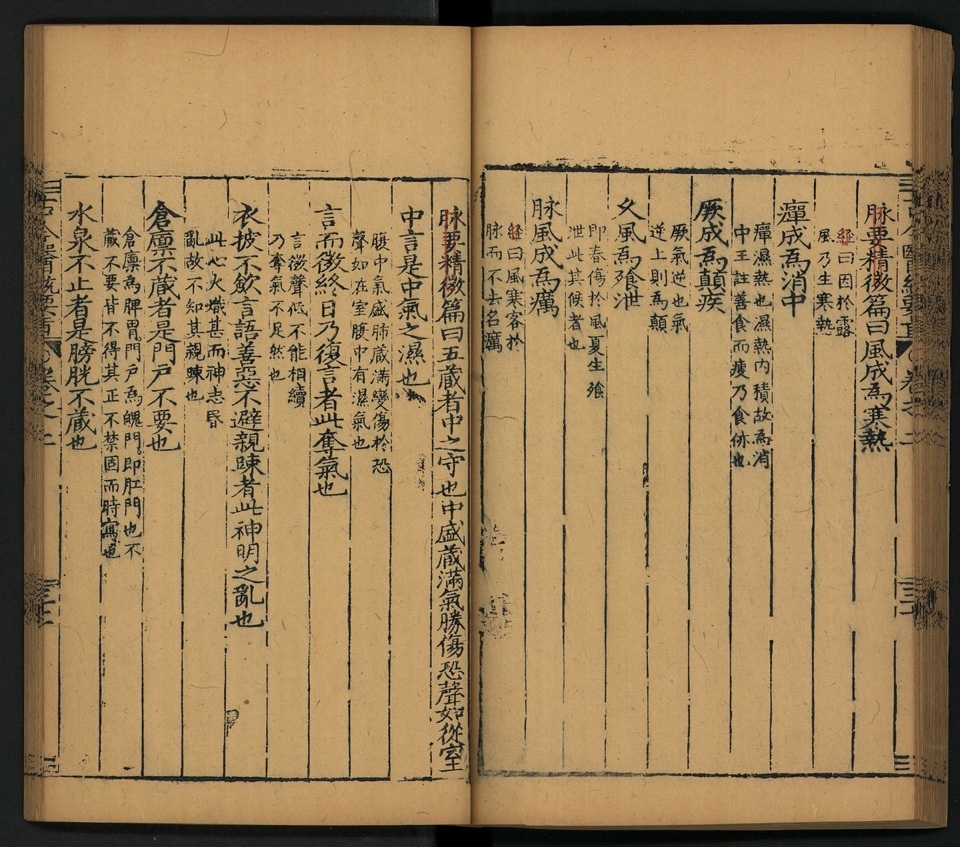 脉要精微篇曰風成爲寒熱
経曰因於露
風乃生寒熱
癉成爲消中
癉濕熱也濕熱内積故爲消
中王註善食而瘦乃食㑊也
厥成爲顛疾
厥氣逆也氣
逆上則爲顛
久風爲飧泄
即春傷於風夏生飧
泄此其候者也
脉風成爲厲
経曰風寒客於
脉而不去名厲
脉要精微篇曰五蔵者中之守也中盛蔵滿氣勝傷恐聲如從室
中言是中氣之濕也
腹中氣盛肺蔵滿變傷於恐
聲如在室腹中有濕氣也
言而微終日乃復言者此奪氣也
言微聲低不能相續
乃奪氣不足然也
衣披不歛言語善惡不避親踈者此神明之亂也
此心火熾甚而神志昏
亂故不知其親踈也
倉廪不蔵者是門戸不要也
倉廪爲脾胃門戸爲魄門即肛門也不
蔵不要皆不得其正不禁固而時寫也
水泉不止者是膀胱不蔵也